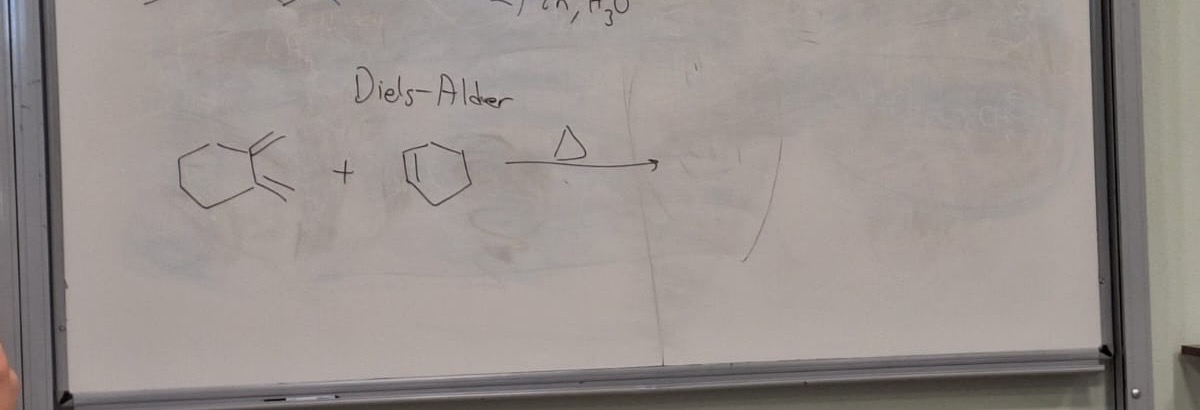 , Zn, H₃O
Diels-Alder
+ Δ